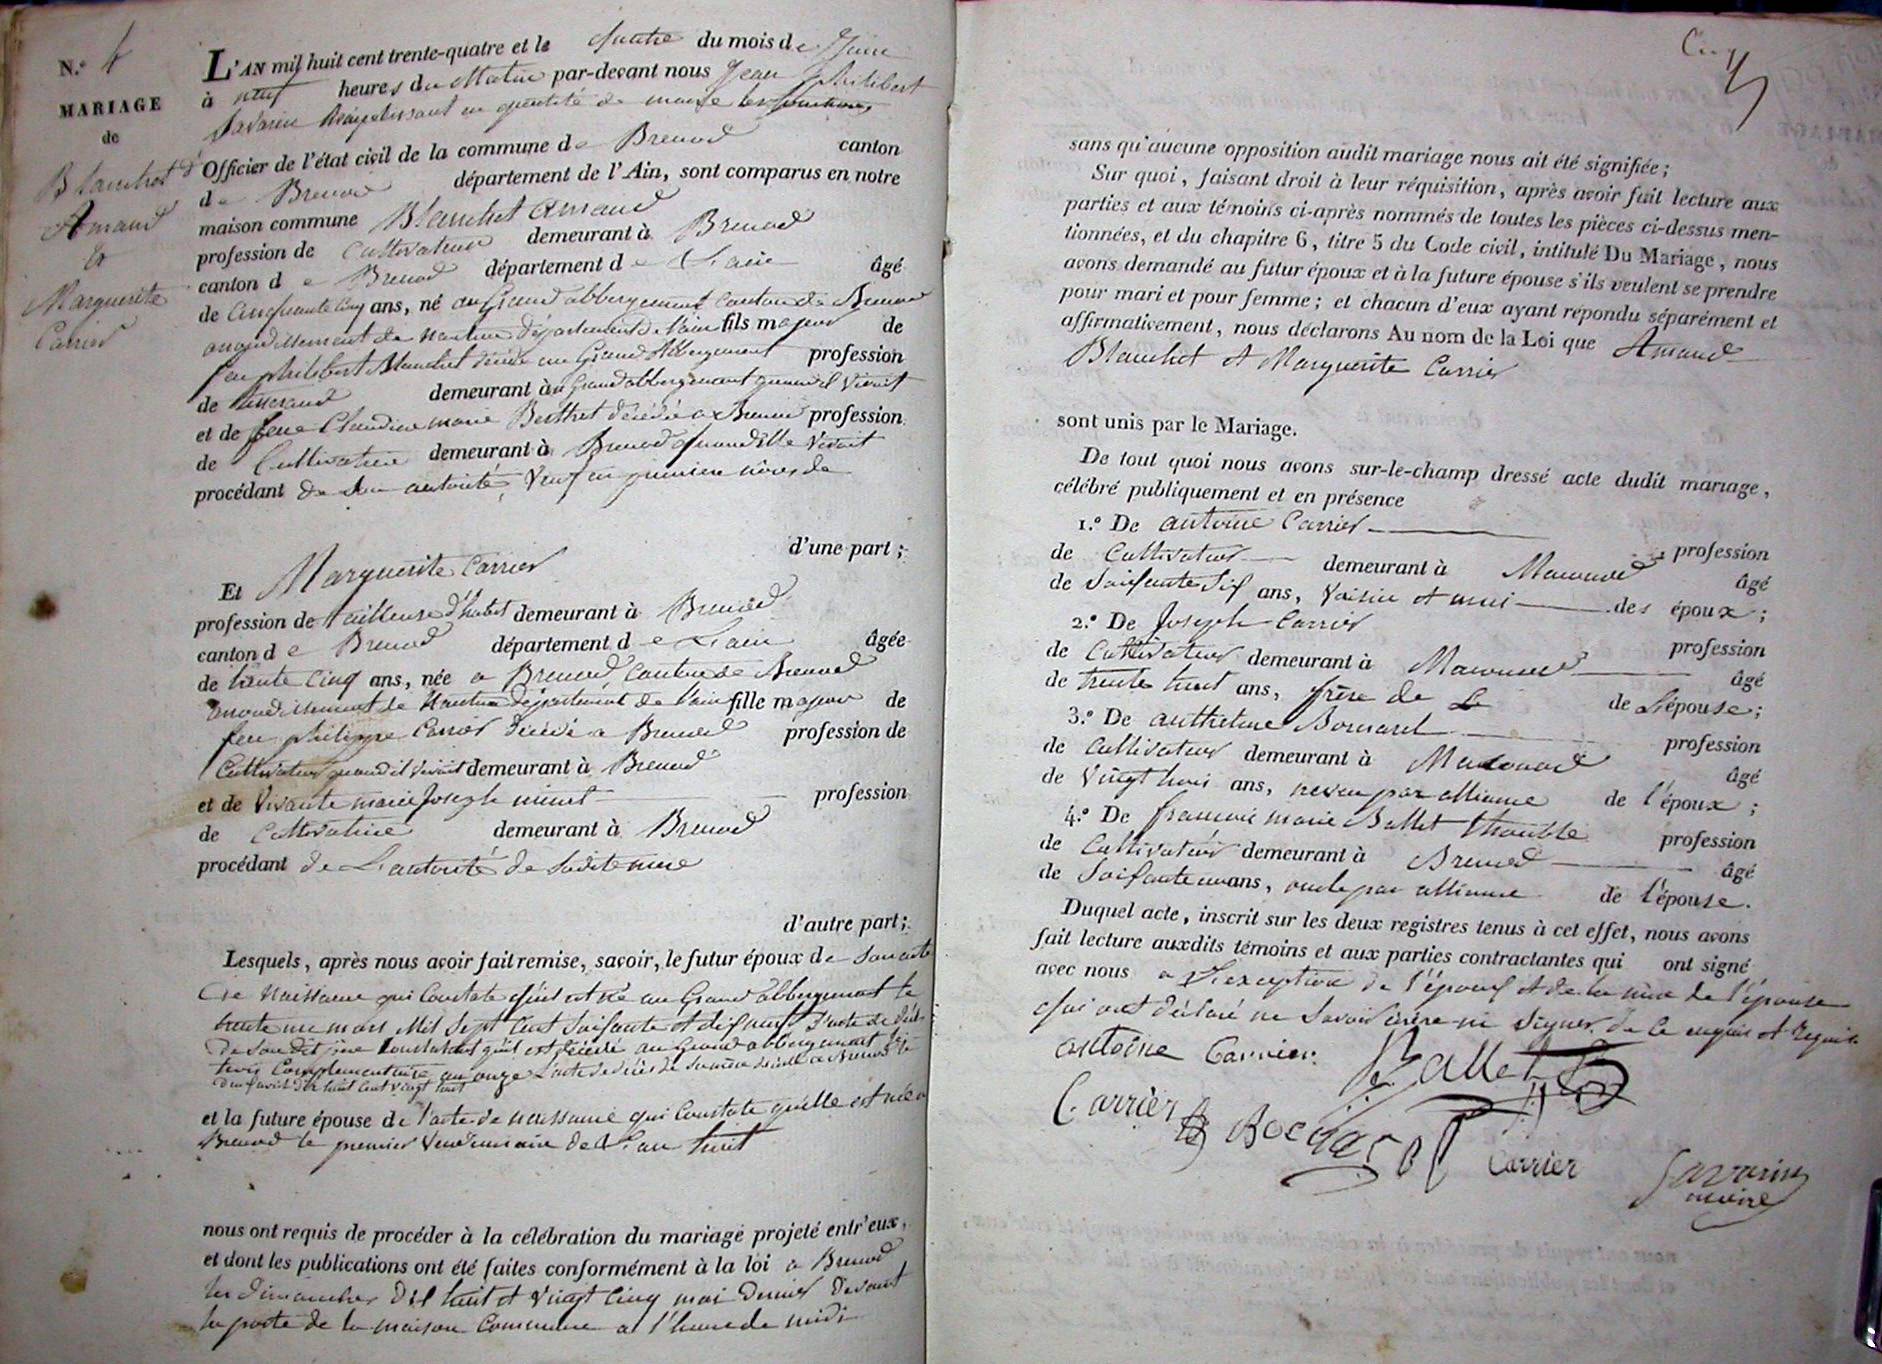 N.º 4
MARIAGE
de
Blanchet
Amand
&
Marguerite
Carrier
L'AN mil huit cent trente-quatre et le quatre du mois de Juin
à neuf heures du Matin par-devant nous Jean Philibert
Savarin Remplissant en qualité de maire les fonctions
Officier de l'état civil de la commune de Brenod canton
de Brenod département de l'Ain, sont comparus en notre
maison commune Blanchet Amand
profession de Cultivateur demeurant à Brenod
canton de Brenod département de L'ain âgé
de Cinquante Cinq ans, né au Grand abbergement Canton de Brenod
arrondissement de Nantua Département de l'ain fils majeur de
feu philibert Blanchet décédé au Grand Abbergement profession
de tisserand demeurant au Grand abbergement quand il vivait
et de feue Claudine marie Berthet décédée a Brenod profession
de Cultivatrice demeurant à Brenod quand Elle vivait
procédant de Son autorité, Veuf en premiere nôces de
d'une part;
Et Marguerite Carrier
profession de tailleuse d'habit demeurant à Brenod
canton de Brenod département de L'ain âgée
de trente Cinq ans, née a Brenod Canton de Brenod
arrondissement de Nantua département de l'ain fille majeur de
feu philippe Carrier Décédé a Brenod profession de
Cultivateur quand il vivait demeurant à Brenod
et de Vivante marie Joseph minet profession
de Cultivatrice demeurant à Brenod
procédant de L'autorité de Sadite mere
d'autre part;
Lesquels, après nous avoir fait remise, savoir, le futur époux de Son acte
De Naissance qui Constate qu'il est né au Grand abbergement le
trente un mars Mil Sept Cent Soixante et dix neuf L'acte de décès
de Son dit père Constatant qu'il est décédé au Grand abbergement le
trois Complementaire an onze L'acte de décès de Sa mère décédée a Brenod le
deux avril dix huit Cent vingt huit
et la future épouse de l'acte de naissance qui Constate qu'elle est née a
Brenod le premier Vendemiaire de L'an huit
nous ont requis de procéder à la célébration du mariage projeté entr'eux,
et dont les publications ont été faites conformément à la loi a Brenod
les dimanches Dix huit et Vingt Cinq mai Dernier Devant
la porte de la maison Commune a l'heure de midi
Cinq
5
sans qu'aucune opposition audit mariage nous ait été signifiée;
Sur quoi, faisant droit à leur réquisition, après avoir fait lecture aux
parties et aux témoins ci-après nommés de toutes les pièces ci-dessus men-
tionnées, et du chapitre 6, titre 5 du Code civil, intitulé Du Mariage, nous
avons demandé au futur époux et à la future épouse s'ils veulent se prendre
pour mari et pour femme; et chacun d'eux ayant répondu séparément et
affirmativement, nous déclarons Au nom de la Loi que Amand
Blanchet et Marguerite Carrier
sont unis par le Mariage.
De tout quoi nous avons sur-le-champ dressé acte dudit mariage,
célébré publiquement et en présence
1.º De antoine Carrier, profession
de Cultivateur demeurant à Macconod âgé
de Soixante Six ans, Voisin et ami des époux;
2.º De Joseph Carrier profession
de Cultivateur demeurant à Macconod âgé
de trente huit ans, frère de L de L'épouse;
3.º De anthelme profession
de Cultivateur demeurant à Macconod âgé
de Vingt trois ans, neveu par alliance de l'époux;
4.º De francois marie Ballet profession
de Cultivateur demeurant à Brenod âgé
de Soixante un ans, oncle par alliance de l'épouse.
Duquel acte, inscrit sur les deux registres tenus à cet effet, nous avons
fait lecture auxdits témoins et aux parties contractantes qui ont signé
avec nous a L'exception de l'époux et de la mère de l'épouse
qui ont déclaré ne Savoir écrire ni Signer. de Ce enquis et Requis
antoine Carrier. Ballet
Carrier Carrier Savarin
maire